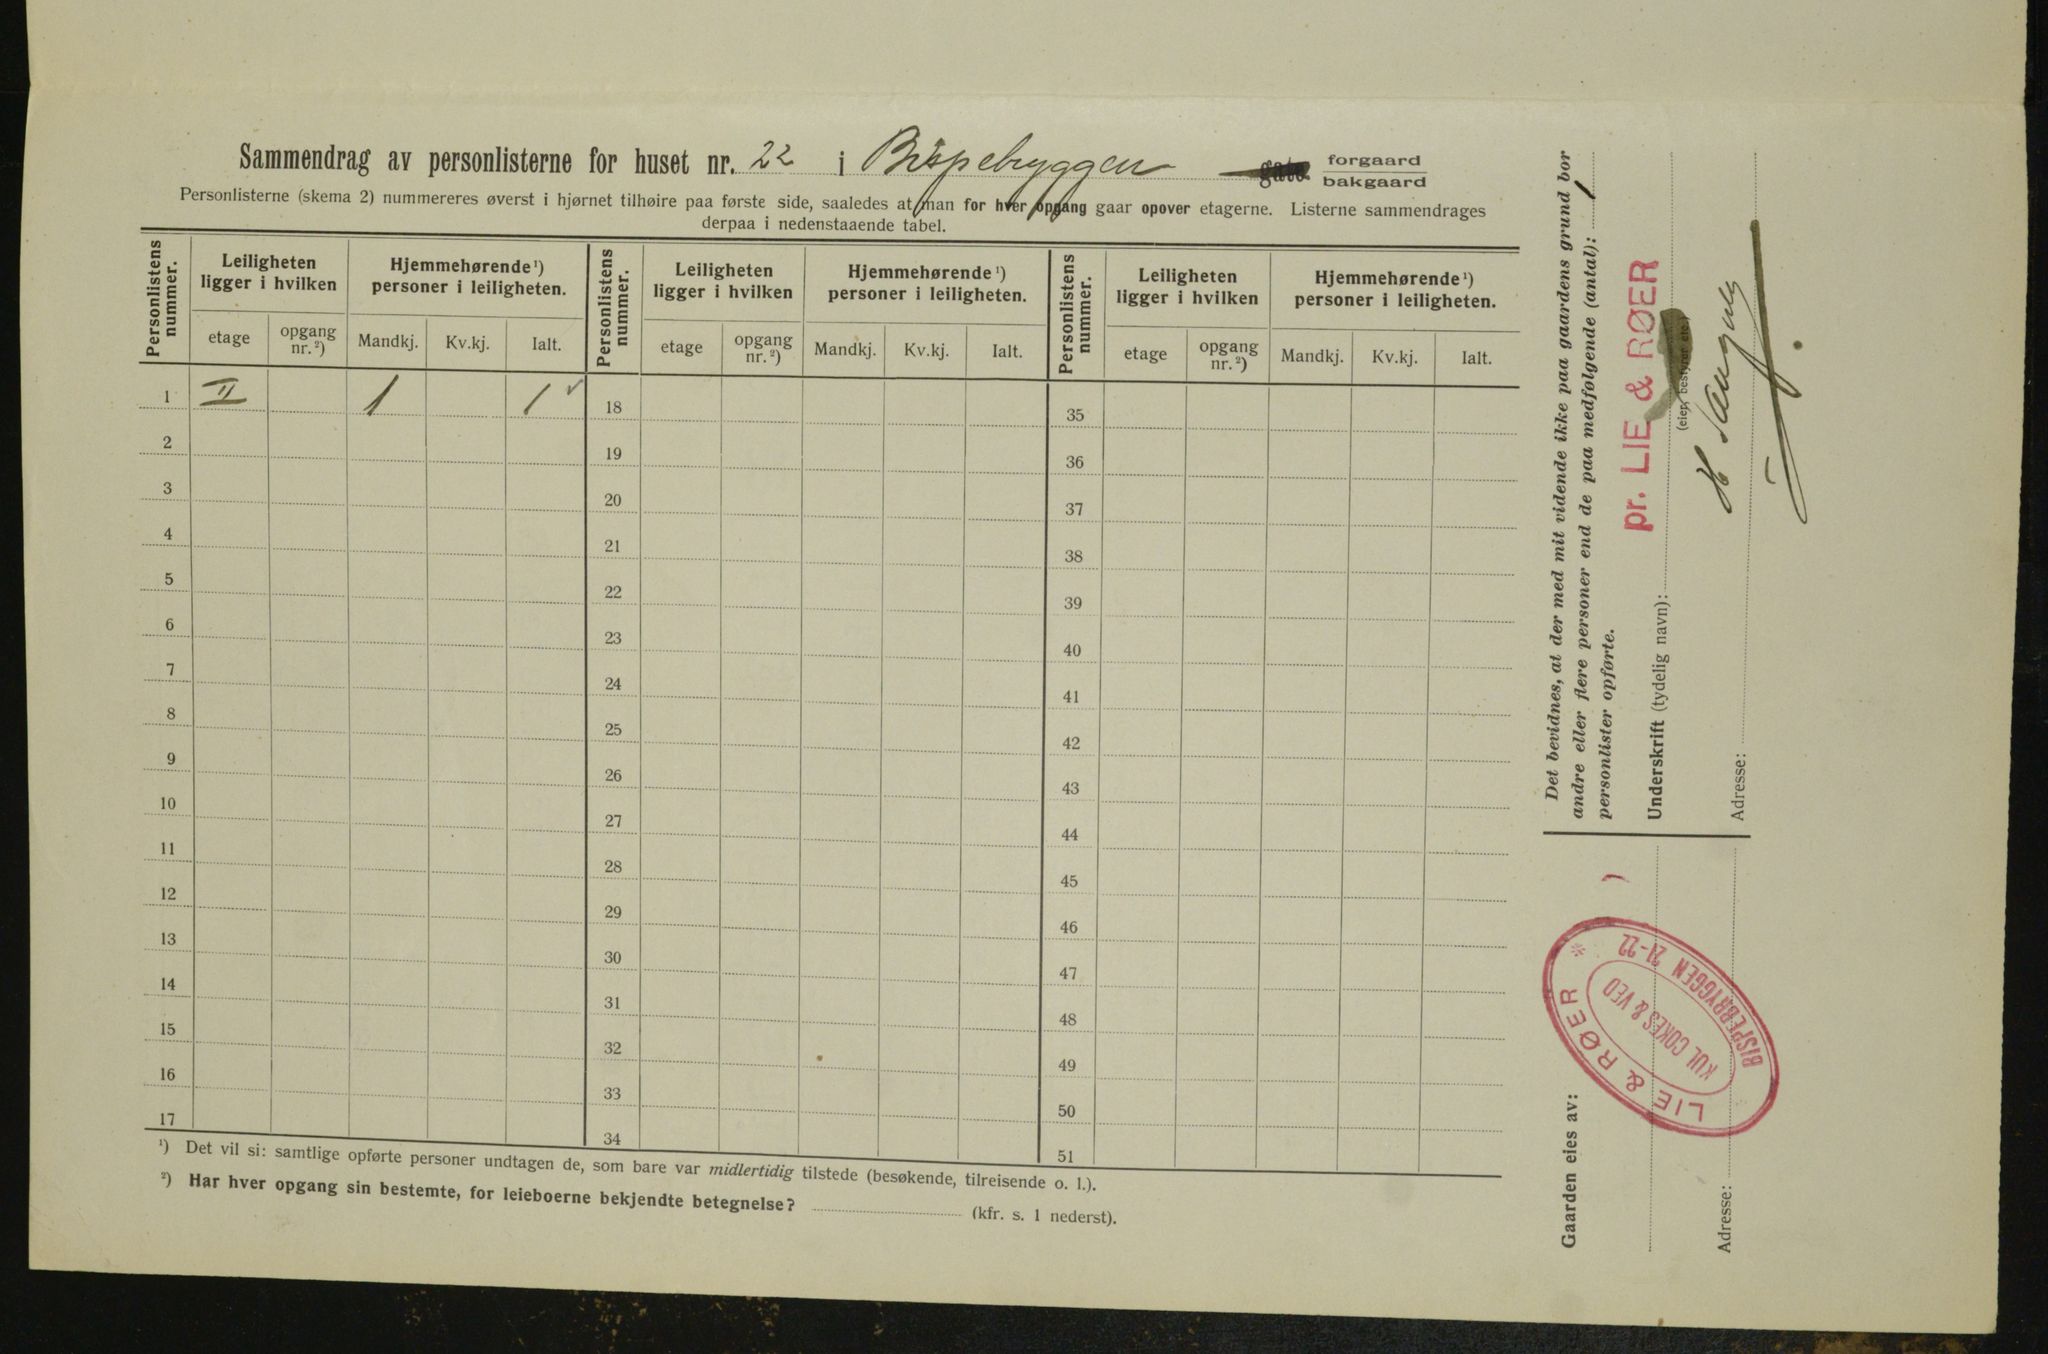 Sammendrag av personlisterne for huset nr. 22 i Bispebryggen gate forgaard
bakgaard
Personlisterne (skema 2) nummereres øverst i hjørnet tilhøire paa første side, saaledes at man for hver opgang gaar opover etagerne. Listerne sammendrages
derpaa i nedenstaaende tabel.
Personlistens nummer.
Leiligheten ligger i hvilken
Hjemmehørende ¹) personer i leiligheten.
etage
opgang nr. ²)
Mandkj.
Kv.kj.
Ialt.
Personlistens nummer.
Leiligheten ligger i hvilken
Hjemmehørende ¹) personer i leiligheten.
etage
opgang nr. ²)
Mandkj.
Kv.kj.
Ialt.
Personlistens nummer.
Leiligheten ligger i hvilken
Hjemmehørende ¹) personer i leiligheten.
etage
opgang nr. ²)
Mandkj.
Kv.kj.
Ialt.
1 II 1 1 ✓ 18 35
2 19 36
3 20 37
4 21 38
5 22 39
6 23 40
7 24 41
8 25 42
9 26 43
10 27 44
11 28 45
12 29 46
13 30 47
14 31 48
15 32 49
16 33 50
17 34 51
¹) Det vil si: samtlige opførte personer undtagen de, som bare var midlertidig tilstede (besøkende, tilreisende o. l.).
²) Har hver opgang sin bestemte, for leieboerne bekjendte betegnelse? (kfr. s. 1 nederst).
Det bevidnes, at der med mit vidende ikke paa gaardens grund bor
andre eller flere personer end de paa medfølgende (antal): 1
personlister opførte.
pr. LIE & RØER
Underskrift (tydelig navn):
(eier, bestyrer etc.)
H
Adresse:
Gaarden eies av:
LIE & RØER *
KUL COKES & VED
BISPEBRYGGEN 21-22
Adresse: